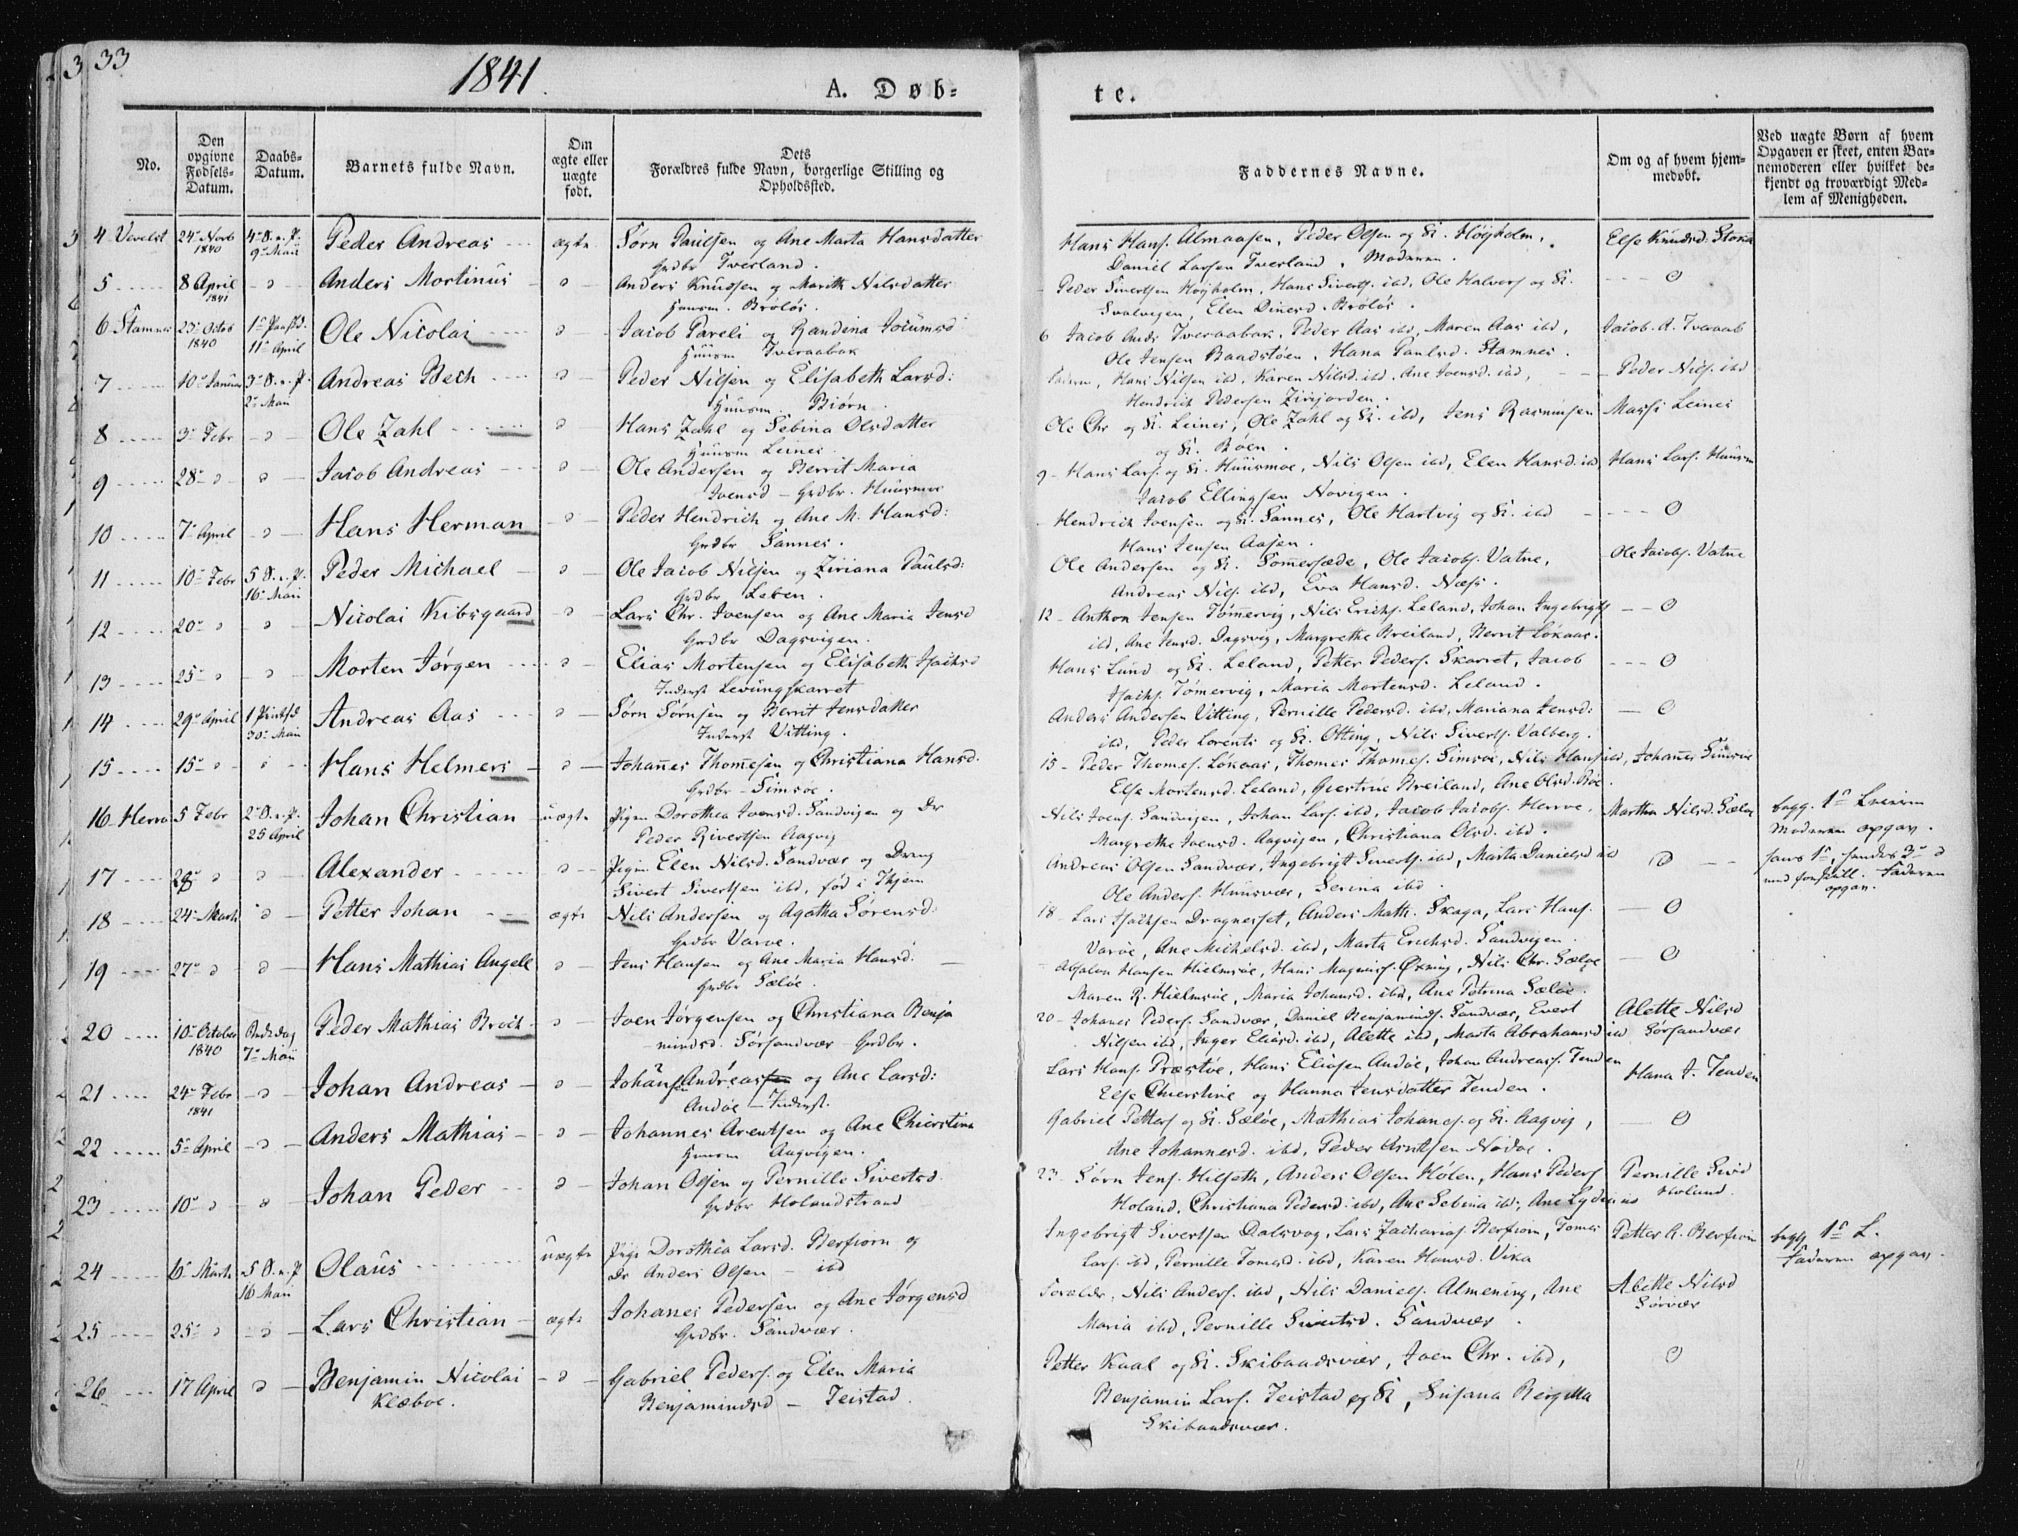 33
1841.
A. Døb-
te.
No.
Den opgivne Fødsels-Datum.
Daabs-Datum.
Barnets fulde Navn.
Om ægte eller uægte født.
Dets Forældres fulde Navn, borgerlige Stilling og Opholdssted.
Faddernes Navne.
Om og af hvem hjem-medøbt.
Ved uægte Børn af hvem Opgaven er skeet, enten Bar-nemoderen eller hvilket be-kjendt og troværdigt Med-lem af Menigheden.
4 Vevelst 24 Novb 1840 4 S. e. P. 9 Maii Peder Andreas ægte Sørn Paulsen og Ane Marta Hansdatter
Grdbr Tverland.
Hans Hans. Almaasen, Peder Olsen og K. Høyholm,
Daniel Larsen Tverland, Moderen.
Else Knudsd. Stord
5 8 April 1841 Anders Mortinus Anders Knudsen og Marith Nilsdatter
Huusm. Brøløs.
Peder Sivertsen Høyholm, Hans Siverts. ibd, Ole Halvors og K.
Svalvigen, Elen Dinesd. Brøløs
6 Stamnes 23 Octob 1840 11 April Ole Nicolai Jacob Pareli og Randina Jocumsd
Huusm Tveraabak
6 Jacob Ands Tveraabak, Peder Aas ibd, Maren Aas ibd,
Ole Jensen Baadstøen, Hana Paulsd. Stamnes.
Jacob A. Tveraab
7 10 Januar 3 S. e. P. 2 Maii Andreas Bech Peder Nilsen og Elisabeth Larsd:
Huusm Biørn.
Faderen, Hans Nilsen ibd, Karen Nilsd. ibd, Ane Ivensd. ibd,
Hendrich Pedersen Zirijorden.
Peder Nils. ibd
8 3 Febr Ole Zahl Hans Zahl og Sebina Olsdatter
Huusm Leines.
Ole Chr og K. Leines, Ole Zahl og K. ibd, Jens Rasmussen
og K. Bøen.
Massi Leines
9 28 Jacob Andreas Ole Andersen og Berrit Maria
Ivensd - Grdbr. Huusmoe
9 Hans Lars. og K. Huusmoe, Nils Olsen ibd, Elen Hansd. ibd
Jacob Ellingsen Novigen.
Hans Lars. Huusm
10 7 April Hans Herman Peder Hendrich og Ane M. Hansd:
Grdbr Sannes.
Hendrich Ivensen og K. Sannes, Ole Hartvig og K. ibd
Hans Jensen Aasen.
11 10 Febr 5 S. e. P. 16 Maii Peder Michael Ole Jacob Nilsen og Ziriana Paulsd:
Grdbr Leben.
Ole Andersen og K. Sommersæde, Ole Jacobs. Vatne,
Andreas Nils. ibd, Eva Hansd. Næss.
Ole Jacobs. Vatne
12 20 Nicolai Kibsgaard Lars Chr. Ivensen og Ane Maria Jensd
Grdbr Dagsvigen.
12 Anthon Jensen Tømmervig, Nils Erichs. Leland, Johan Ingebrigts
ibd, Ane Jensd. Dagsvig, Margrethe Breiland, Berrit Løkaas.
13 25 Morten Jørgen Elias Mortensen og Elisabeth Isachsd
Inderst Levungskarret
Hans Lund og K. Leland, Petter Peders. Skarret, Jacob
Isachs. Tømervig, Maria Mortensd. Leland.
14 29 April 1 Pintsd 30 Maii Andreas Aas Sørn Sørnsen og Berrit Jensdatter
Inderst Vitting.
Anders Andersen Vitting, Pernille Pedersd. ibd, Mariana Jensd:
ibd, Peder Lorents og K. Otting, Nils Siverts. Valberg.
15 15 Hans Helmers Johannes Thomesen og Christiana Hansd.
Grdbr - Simsoe.
15 Peder Thomes. Løkaas, Thomes Thomes. Simsoe, Nils Hans. ibd, Johannes Simsoe
Else Mortensd. Leland, Giertrine Breiland, Ane Olsd. Bøe.
16 Herrø 5 Febr 2 S. e. P. 25 April Johan Christian uægte Pigen Dorothea Ivensd. Sandvigen og Dr
Peder Sivertsen Aagvig
Nils Ivens. Sandvigen, Johan Lars. ibd, Jacob Jacobs. Herrøe,
Margrethe Ivensd. Aagvigen, Christiana Olsd. ibd.
Martha Nilsd. Sæløe
begg. 1ste Leierm
Moderen opgav.
17 28 Alexander Pigen Elen Nilsd. Sandvær og Dreng
Sivert Sivertsen ibd, fød i
Andreas Olsen Sandvær, Ingebrigt Siverts. ibd, Marta Danielsd ibd
Ole Anders. Huusvær, Serina ibd.
hans 1ste, hendes 3die
Faderen
opgav.
18 24 Marts Petter Johan ægte Nils Andersen og Agatha Sørensd:
Grdbr Varøe.
18 Lars Isachsen Dragnesset, Anders Math. Skaga, Lars Hans.
Varøe, Ane Michelsd. ibd, Marta Erichsd. Sandvigen.
19 27 Hans Mathias Angell Jens Hansen og Ane Maria Hansd.
Grdbr Sæløe.
Absalon Hansen Hielmsøe, Hans Magnus. Øxning, Nils Chr. Sæløe
Maren R. Hielmsøe, Maria Johansd. ibd, Ane Petrina Sæløe.
20 10 October 1840 Bededag 7 Maii Peder Mathias Broch Joen Jørgensen og Christiana Benja
mindsd. Sørsandvær Grdbr.
20 Johanes Peders. Sandvær, Daniel Benjaminds. Sandvær, Evert
Nilsen ibd, Inger Eliasd. ibd, Alette ibd, Marta Abrahamsd ibd
Alette Nilsd
Sørsandvær
21 24 Febr 1841 Johan Andreas Johan Andreassen og Ane Larsd:
Andøe - Inderst.
Lars Hans. Præstøe, Hans Eliasen Andøe, Johan Andreas. Tenden
Else Chierstine og Hanna Jensdatter Tenden.
Hana J. Tenden
22 5 April Anders Mathias Johannes Arentsen og Ane Chierstina
Huusm Aagvigen.
Gabriel Petters. og K. Sæløe, Mathias Johanes. og K. Aagvig,
Ane Johannesd. ibd, Peder Arntsen Nødøe.
23 10 Johan Peder Johan Olsen og Pernille Sivertsd.
Grdbr Holandstrand
23 Sørn Jens. Hilseth, Anders Olsen Hølen, Hans Peders
Holand, Christiana Pedersd. ibd, Ane Sebina ibd, Ane Lydia
Pernille Sivd
Holand.
24 6 Marts 5 S. e. P. 16 Maii Olaus uægte Pige Dorothea Larsd. Berfiorn og
Dr Anders Olsen - ibd
Ingebrigt Sivertsen Dalsvog, Lars Zacharias. Berfiorn, Tomas
Lars. ibd, Pernille Tomasd. ibd, Karen Hansd. Vika
Petter A. Berfiorn
begg 1ste L.
Faderen opgav.
25 25 Lars Christian ægte Johanes Pedersen og Ane Jørgensd
Grdbr. Sandvær.
Foraldr., Nils Anders. ibd, Nils Daniels. Almening, Ane
Maria ibd, Pernille Sivertsd. Sandvær.
Alette Nilsd
Sørvær
26 17 April Benjamin Nicolai
Klæboe.
Gabriel Peders. og Elen Maria
Benjamindsd - Teistad.
Petter Kaal og K. Skibaadsvær, Joen Chr. ibd,
Benjamin Lars. Teistad og K, Susana Bergitta
Skibaadsvær.